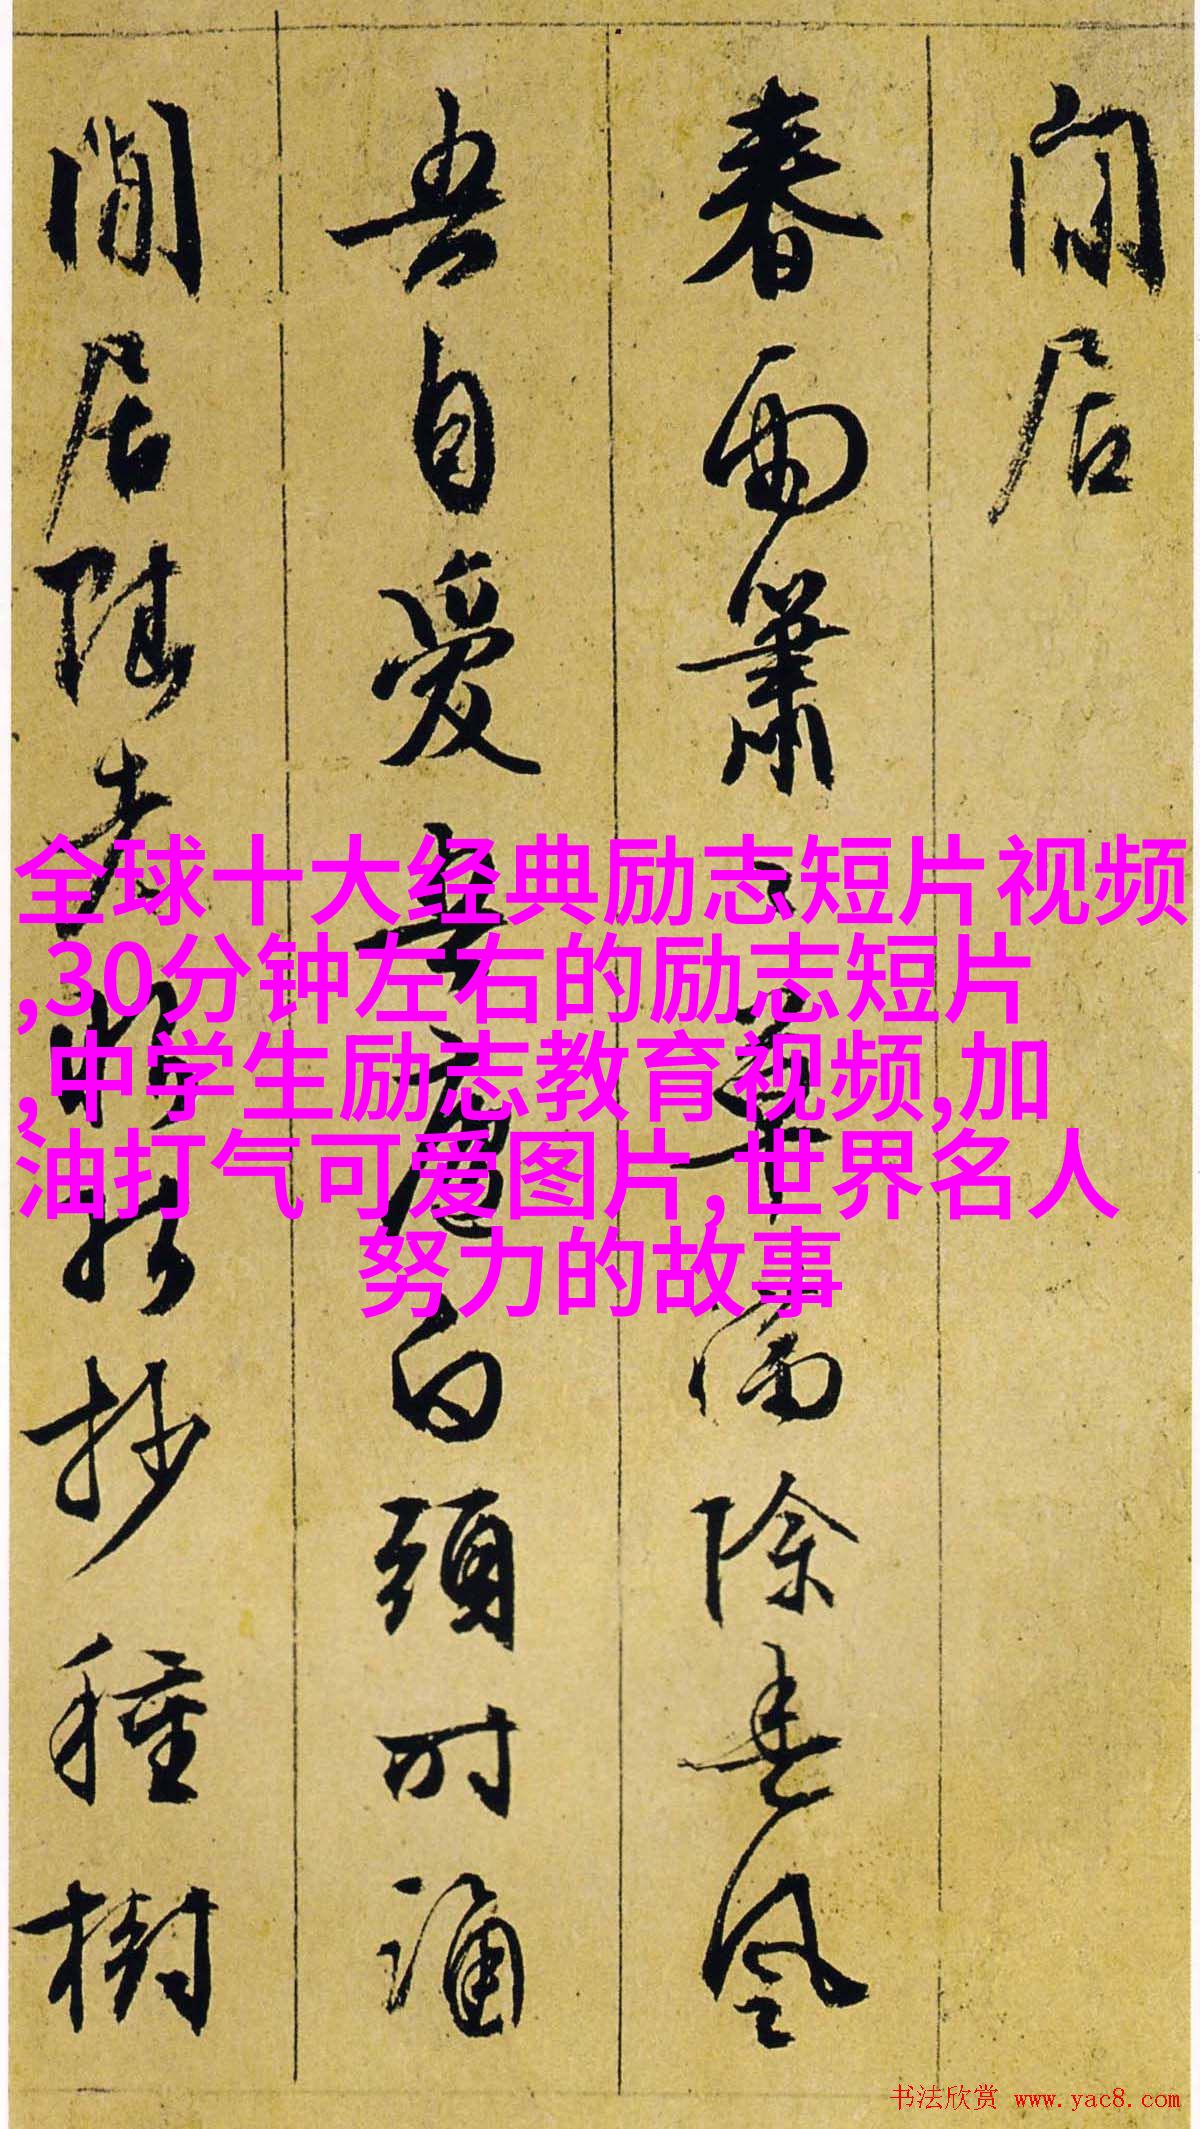 閒居
春雨蕭〻草滿除春風
吾自愛吾廬白頭時誦
閒居賦老眼猶抄種樹
全球十大经典励志短片视频
,30分钟左右的励志短片
,中学生励志教育视频,加
油打气可爱图片,世界名人
努力的故事
书法欣赏 www.yac8.com